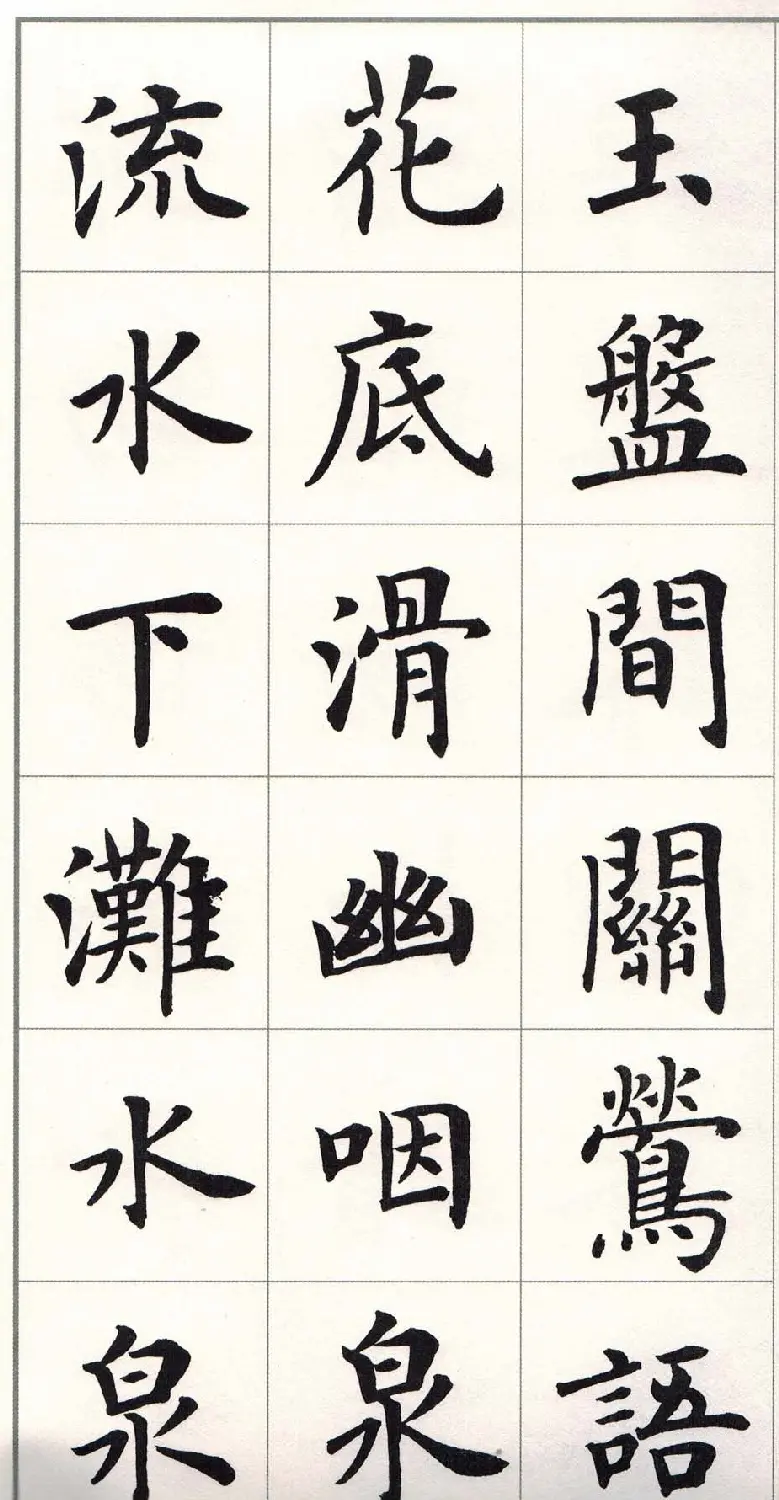 玉盤間關鶯語
花底滑幽咽泉
流水下灘水泉